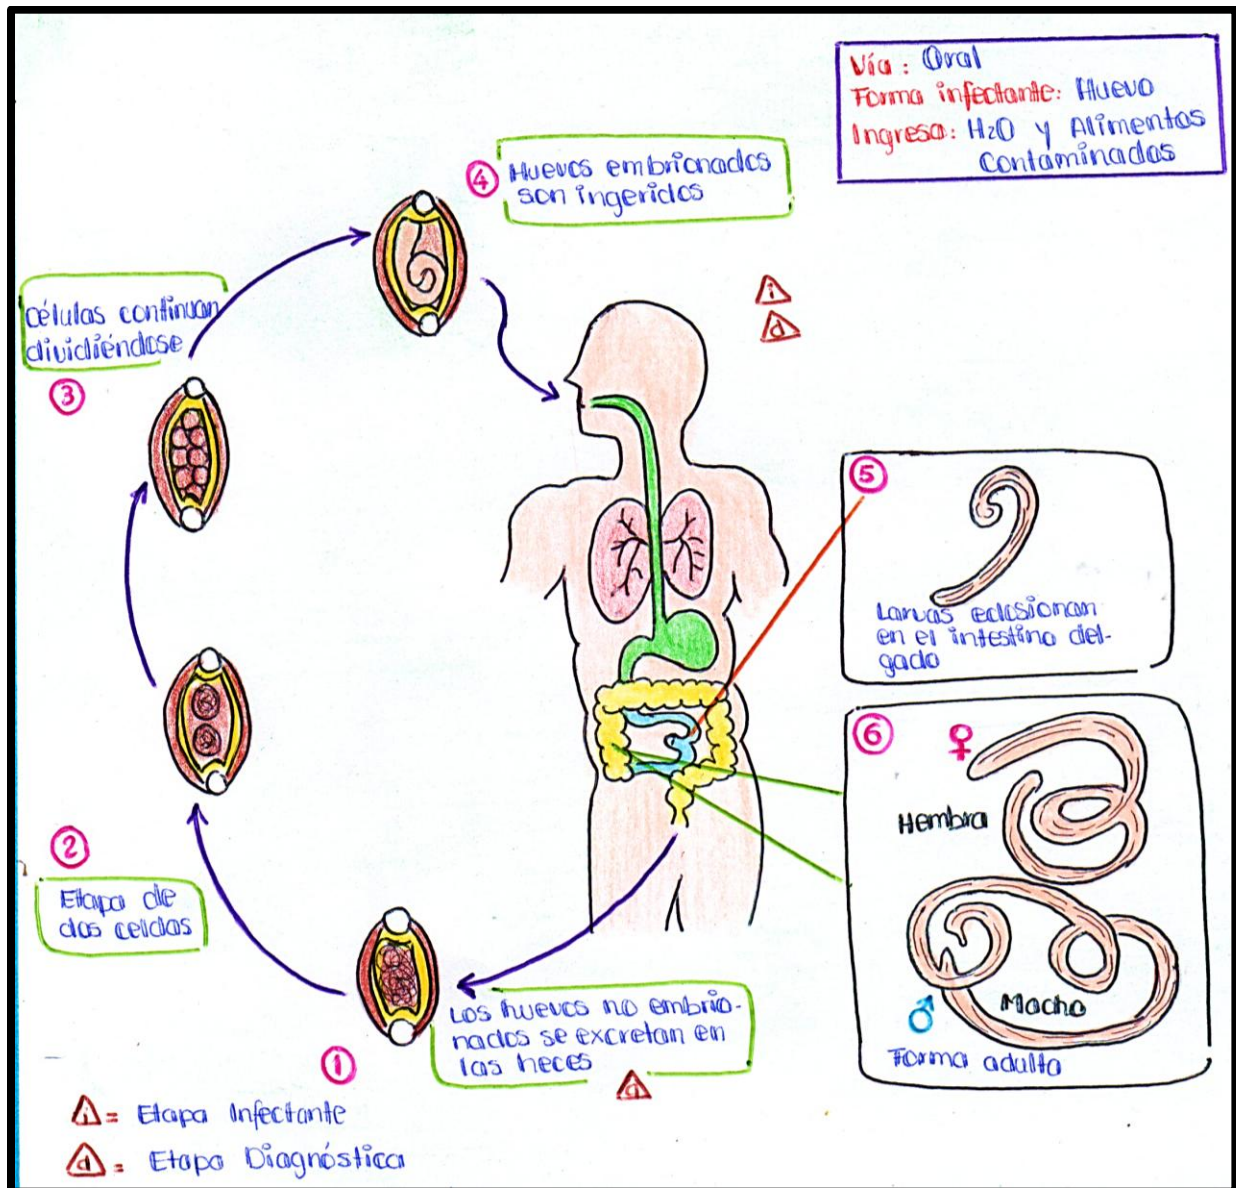 Vía: Oral
Forma infectante: Huevo
Ingresa: H₂O y Alimentos
Contaminados
4
Huevos embrionados
son ingeridos
i
d
Células continuan
dividiéndose
3
5
Larvas eclosionan
en el intestino del-
gado
6
♀
Hembra
Macho
♂
Forma adulta
2
Etapa de
dos celdas
Los huevos no embrio-
nados se excretan en
las heces
1
d
i = Etapa Infectante
d = Etapa Diagnóstica